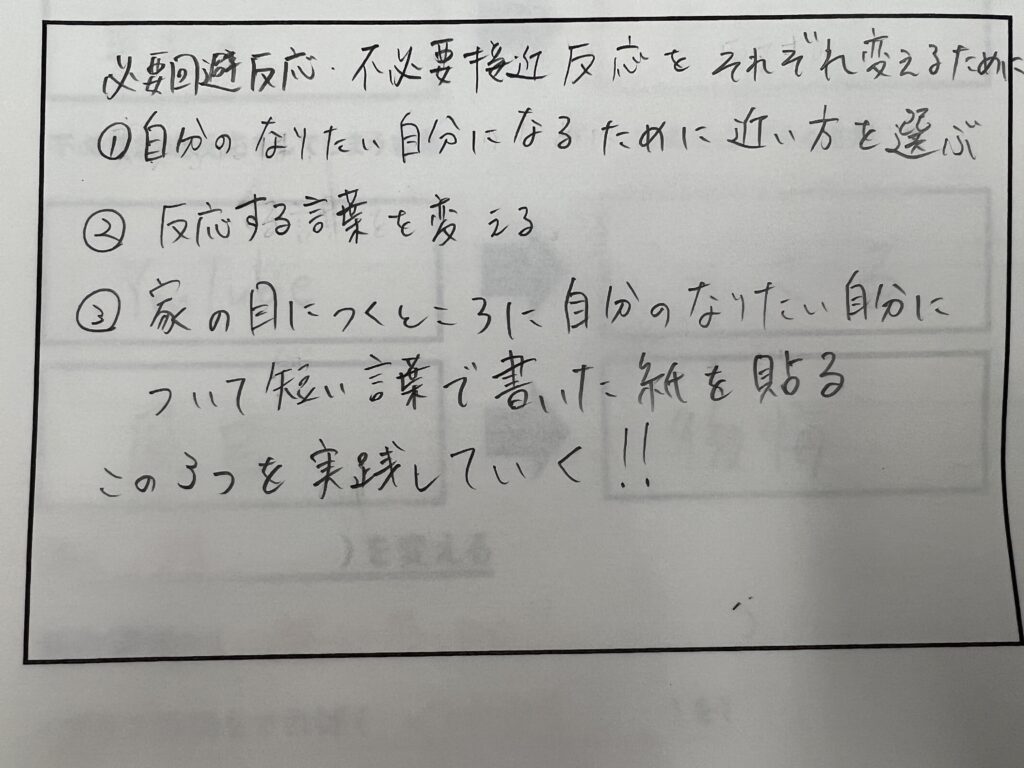 必要回避反応・不必要接近反応をそれぞれ変えるために
①自分のなりたい自分になるために近い方を選ぶ
② 反応する言葉を変える
③ 家の目につくところに自分のなりたい自分に
ついて短い言葉で書いた紙を貼る
この3つを実践していく!!